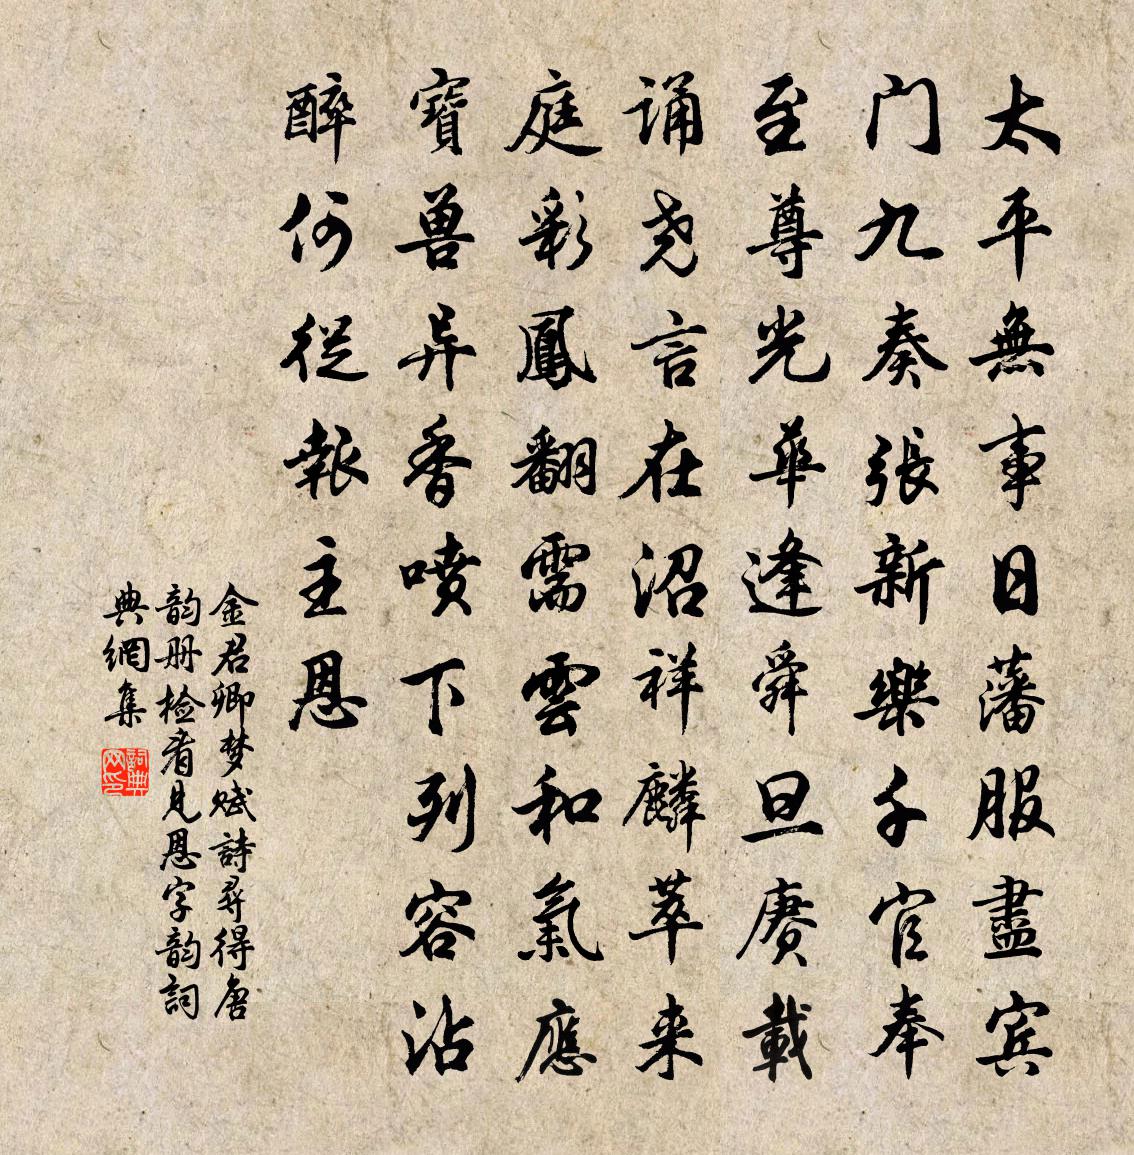 太平無事日藩服盡宾
门九奏張新樂千官奉
至尊光華逢舜旦赓載
诵尧言在沼祥麟萃来
庭彩鳳翻需雲和氣應
寶兽异香喷下列容沾
醉何從報主恩
金君卿梦赋詩尋得唐
韵册检看见恩字韵詞
典網集
詞典
网印